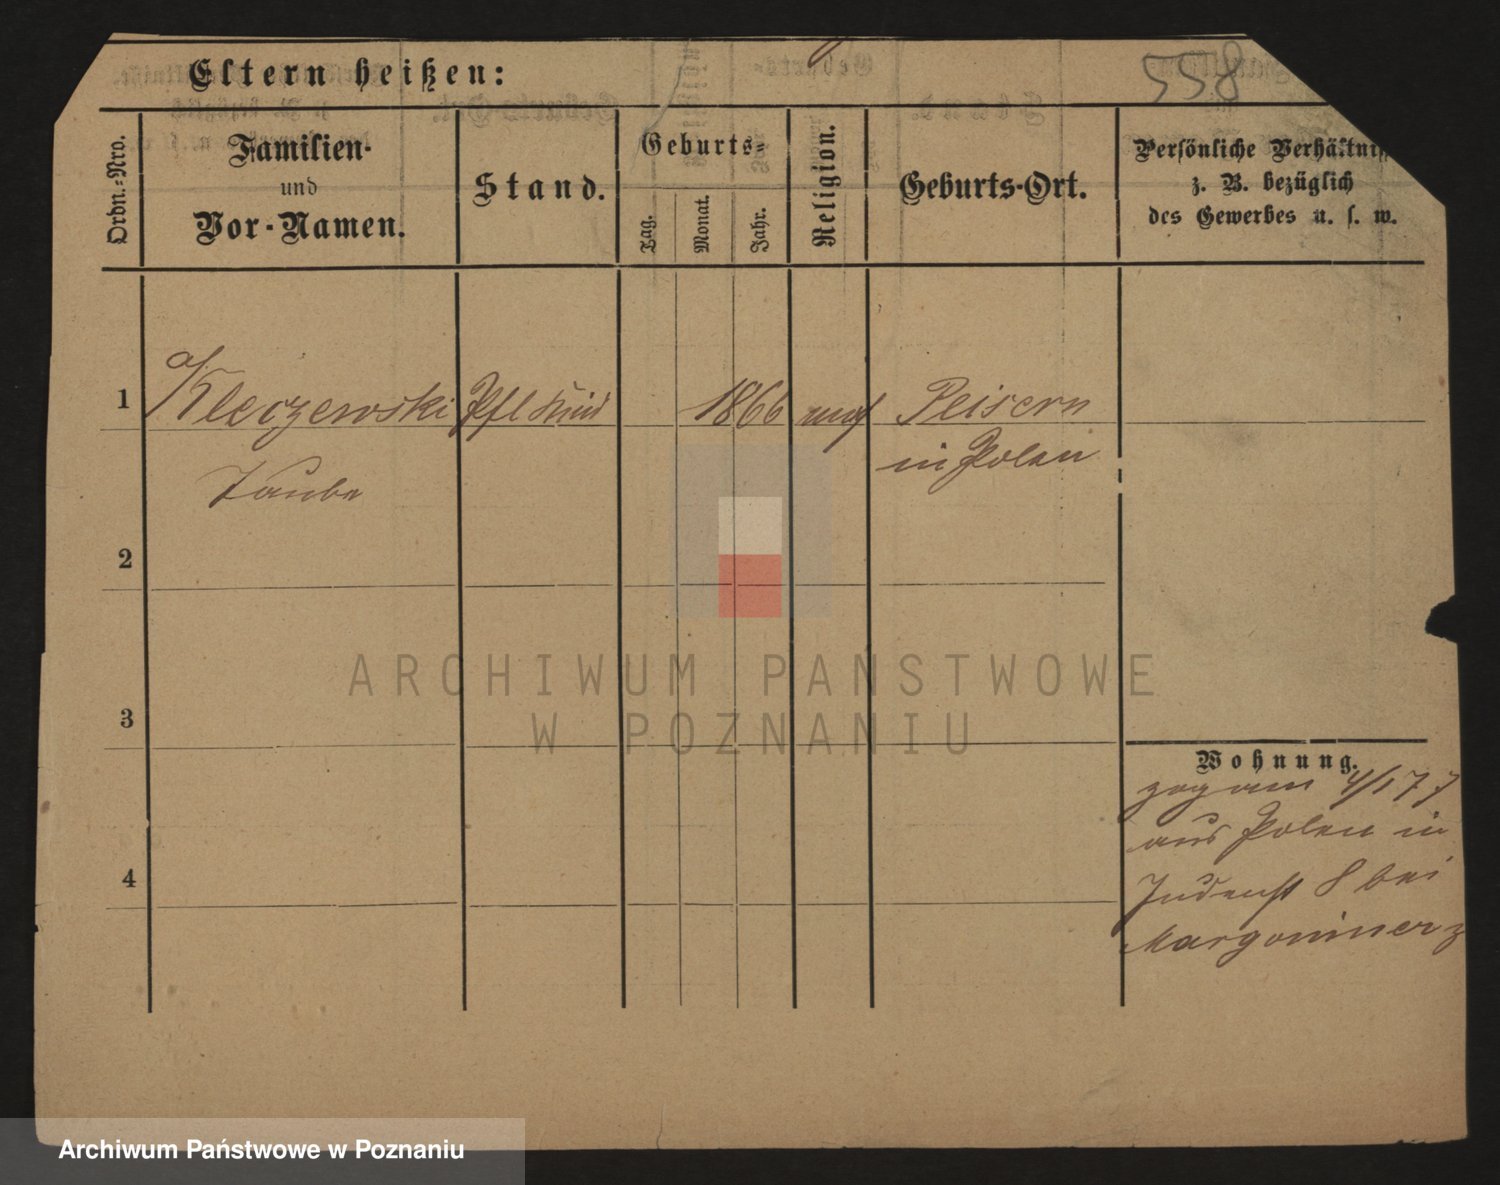 558
Eltern heißen:
Ordn.-Nro.
Familien-
und
Vor-Namen.
Stand.
Geburts-
Tag.
Monat.
Jahr.
Religion.
Geburts-Ort.
Persönliche Verhältnis
z. B. bezüglich
des Gewerbes u. s. w.
1
a/ Kleczewski Pfl Kind 1866 mos Peisern
in Polen
Taube
2
3
4
Wohnung.
zog am 4/1 77
aus Polen in
Judenst 8 bei
Margoniner
ARCHIWUM PAŃSTWOWE
W POZNANIU
Archiwum Państwowe w Poznaniu